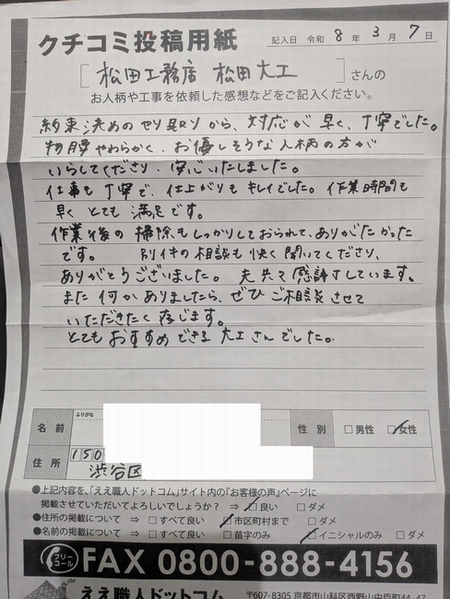 クチコミ投稿用紙
記入日 令和 8年 3月 7日
[松田工務店 松田大工]さんの
お人柄や工事を依頼した感想などをご記入ください。
約束決めのやり取りから、対応が早く、丁寧でした。
物腰やわらかく、お優しそうな人柄の方が
いらしてくださり、安心いたしました。
仕事も丁寧で、仕上がりもキレイでした。作業時間も
早く とても満足です。
作業後の掃除もしっかりしておられて、ありがたかった
です。 別件の相談も快く聞いてくださり、
ありがとうございました。夫共々感謝しています。
また何かありましたら、ぜひご相談させて
いただきたく存じます。
とてもおすすめできる大工さんでした。
ふりがな
名前
性別 □男性 □女性
住所 150
渋谷区
●上記内容を、「ええ職人ドットコム」サイト内の『お客様の声』ページに
掲載させていただいてよろしいでしょうか? ⇒ □良い □ダメ
●住所の掲載について ⇒ □すべて良い □市区町村まで □ダメ
●名前の掲載について ⇒ □すべて良い □苗字のみ □イニシャルのみ □ダメ
フリーコール FAX 0800-888-4156
ええ職人ドットコム 〒607-8305 京都市山科区西野山中臣町44-47